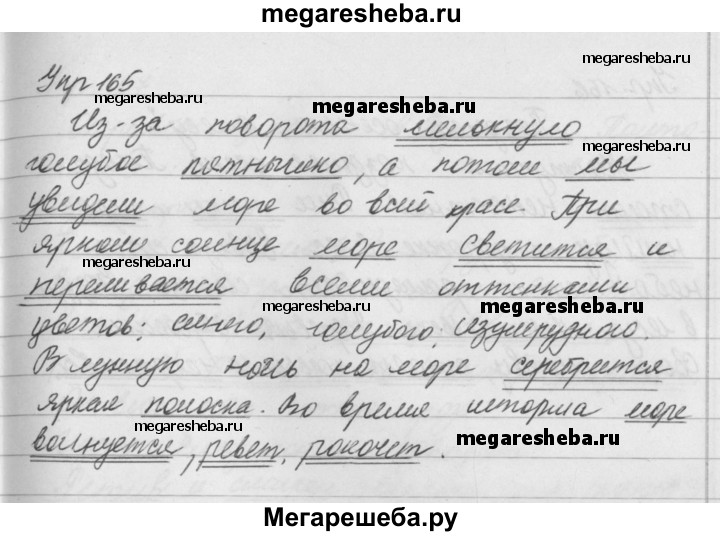 megaresheba.ru
Упр 165
megaresheba.ru
megaresheba.ru megaresheba.ru
Из-за поворота мелькнуло
megaresheba.ru
голубое пятнышко, а потом мы
увидели море во всей красе. При
ярком солнце море светится и
megaresheba.ru megaresheba.ru
переливается всеми оттенками
megaresheba.ru megaresheba.ru
цветов: синего, голубого, изумрудного.
В лунную ночь на море серебрится
megaresheba.ru
яркая полоска. Во время шторма море
megaresheba.ru megaresheba.ru
волнуется, ревет, рокочет.
Мегарешеба.ру